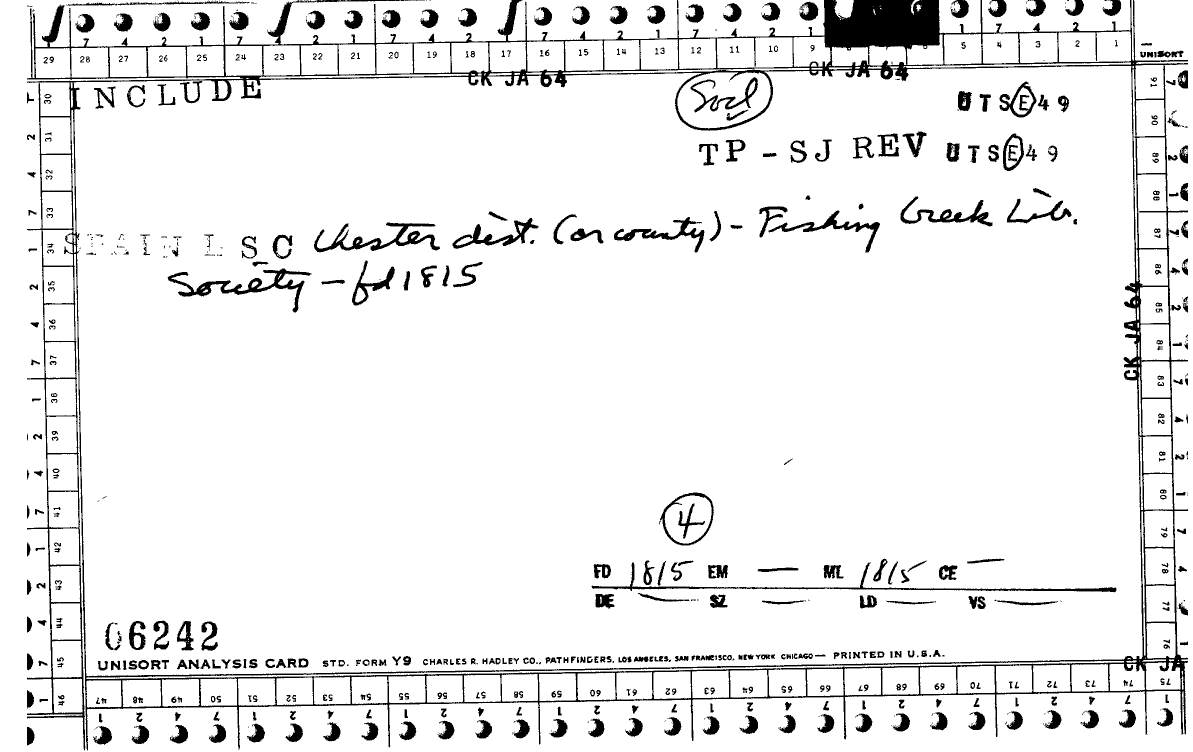 7 4 2 1 7 4 2 1 7 4 2 1 7 4 2 1 7 4 2 1 1 7 4 2 1
29 28 27 26 25 24 23 22 21 20 19 18 17 16 15 14 13 12 11 10 9 5 4 3 2 1 UNISORT
CK JA 64 CK JA 64
INCLUDE
Socl UTSE49
TP - SJ REV UTSE49
SPAIN L SC Chester dist. (or county) - Fishing Creek Lib.
Society - fd 1815
CK JA 64
4
FD 1815 EM — ML 1815 CE —
DE — SZ — LD — VS —
06242
UNISORT ANALYSIS CARD STD. FORM Y9 CHARLES R. HADLEY CO., PATHFINDERS, LOS ANGELES, SAN FRANCISCO, NEW YORK CHICAGO — PRINTED IN U.S.A.
CK JA
30 31 32 33 34 35 36 37 38 39 40 41 42 43 44 45 46
47 48 49 50 51 52 53 54 55 56 57 58 59 60 61 62 63 64 65 66 67 68 69 70 71 72 73 74 75
1 2 4 7 1 2 4 7 1 2 4 7 1 2 4 7 1 2 4 7 1 2 4 7 1 2 4 7 1
76 77 78 79 80 81 82 83 84 85 86 87 88 89 90 91